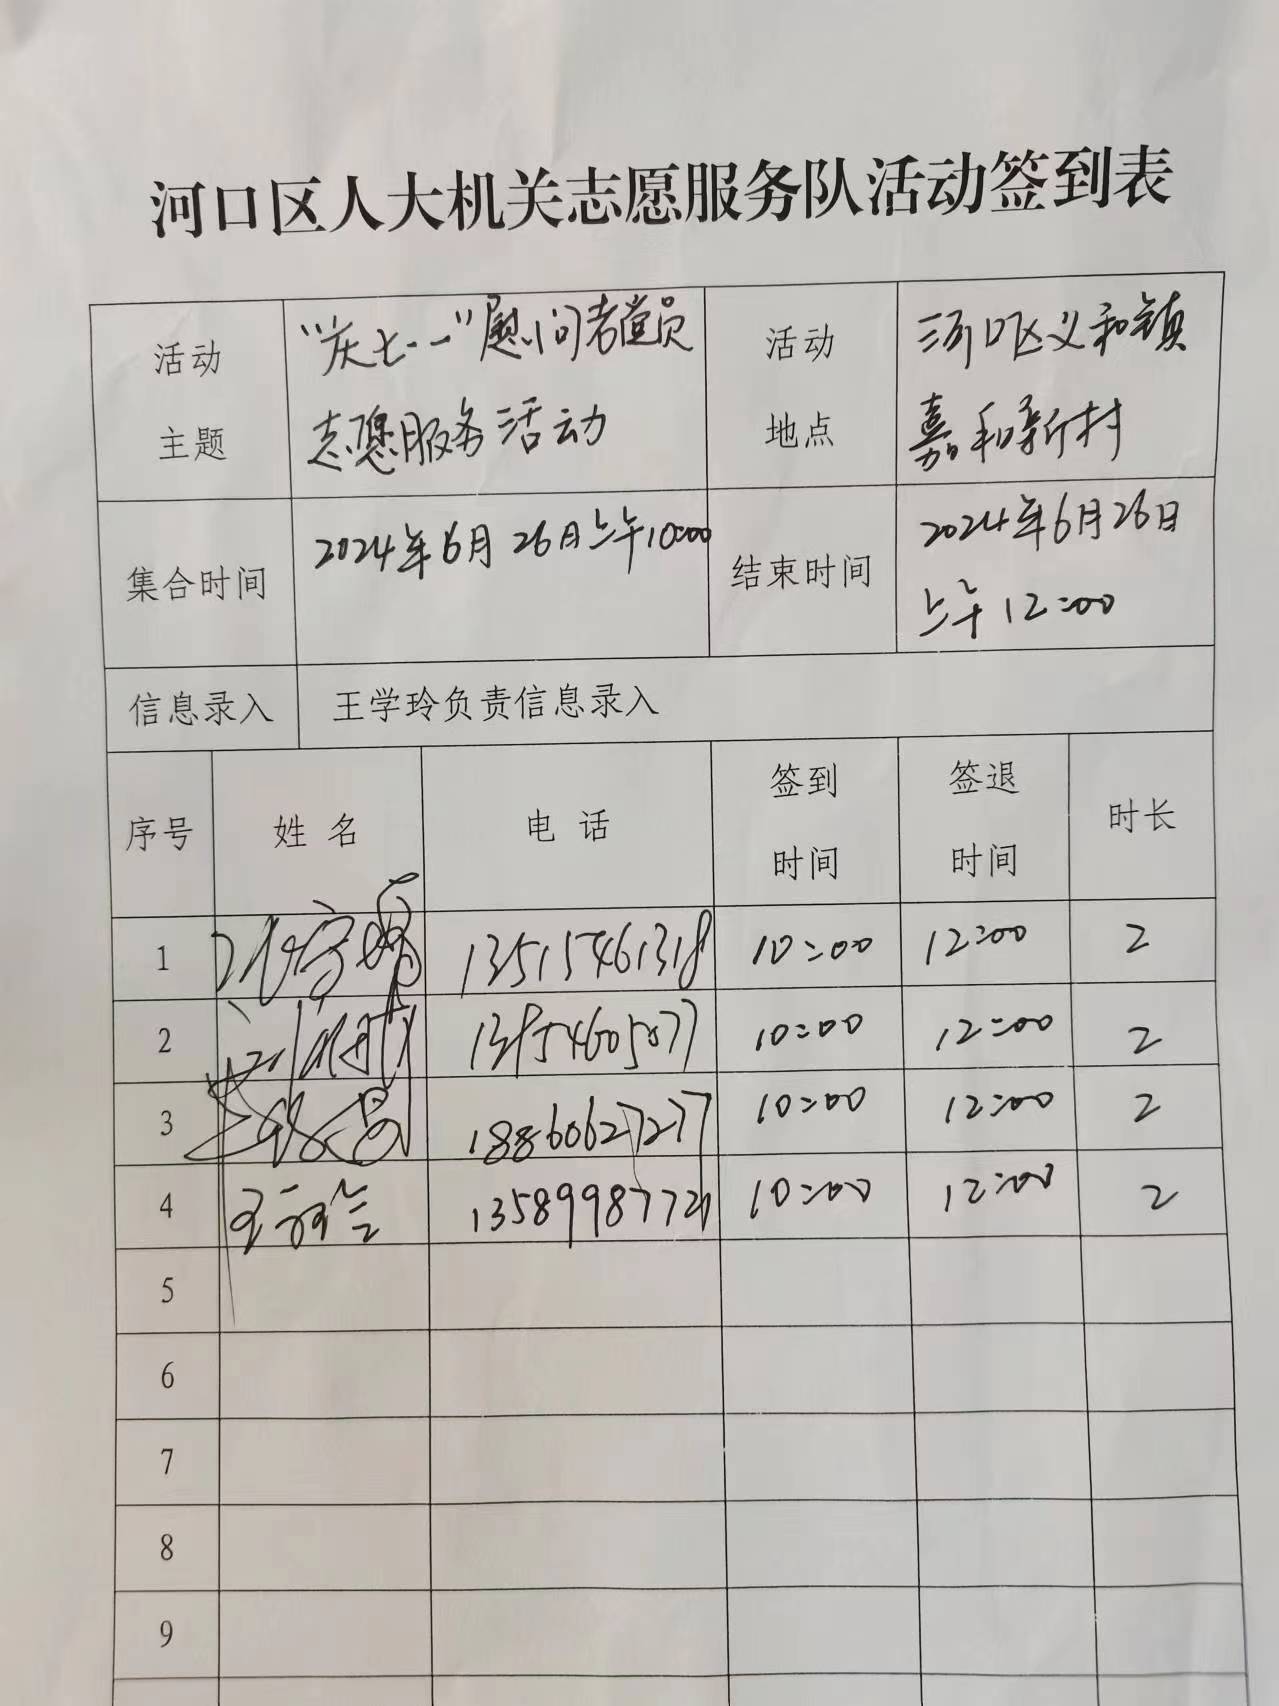 河口区人大机关志愿服务队活动签到表
活动
主题
"庆七一"慰问老党员
志愿服务活动
活动
地点
河口区义和镇
嘉和新村
集合时间
2024年6月26日上午10:00
结束时间
2024年6月26日
上午12:00
信息录入
王学玲负责信息录入
序号
姓 名
电 话
签到
时间
签退
时间
时长
1
13515461318
10:00
12:00
2
2
13854605077
10:00
12:00
2
3
18860627277
10:00
12:00
2
4
10:00
12:00
2
5
6
7
8
9